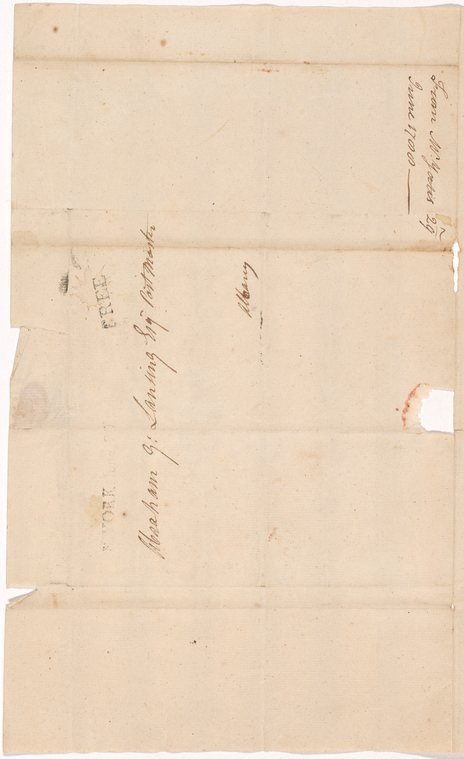 From Mr Yates 29
June
FREE
YORK
Abraham G: Lansing Esqr Post Master
Albany